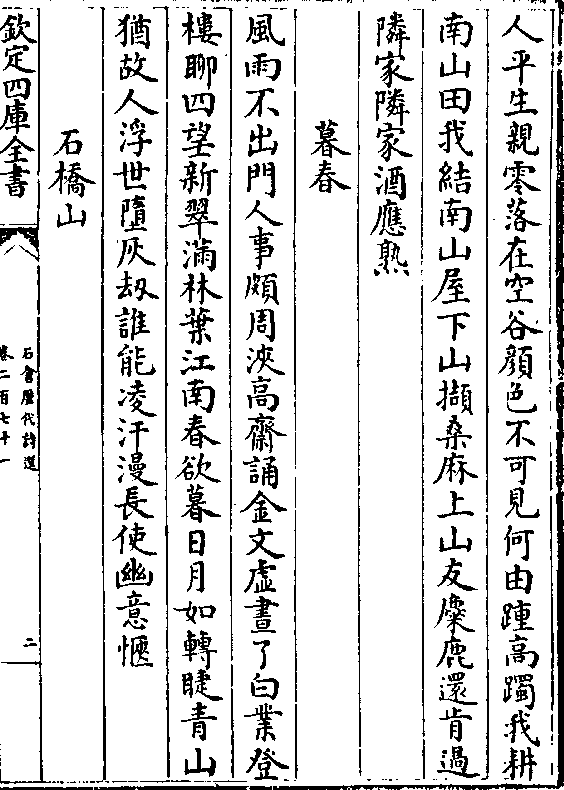 人平生親零落在空谷顔色不可見何由踵高躅我耕
南山田我結南山屋下山擷桑麻上山友麋鹿還肯過
隣家隣家酒應熟
暮春
風雨不出門人事頗周浹高齋誦金文虚晝了白業登
樓聊四望新翠滿林葉江南春欲暮日月如轉睫青山
猶故人浮世墮灰刼誰能凌汗漫長使幽意愜
石橋山
欽定四庫全書
石倉歷代詩選
卷二百七十一
二